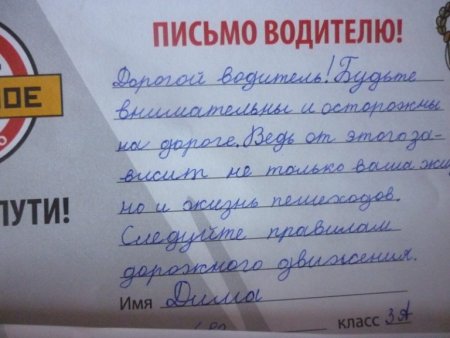 ПИСЬМО ВОДИТЕЛЮ!
Дорогой водитель! Будьте
внимательны и осторожны
на дороге. Ведь от этого за-
висит не только ваша жиз
но и жизнь пешеходов.
Следуйте правилам
дорожного движения.
Имя Дима
класс 3А
ОЕ
ПУТИ!